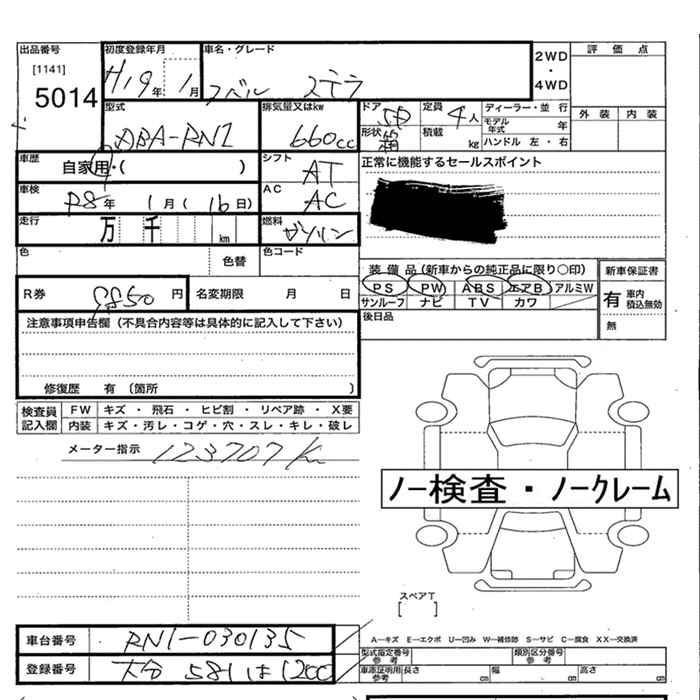 出品番号 初度登録年月 車名・グレード 2WD・4WD 評価点
[1141]
5014 H19年 1月 スバル ステラ
外装 内装
型式 排気量又はkw ドア 5D 定員 4人 ディーラー・並行
DBA-RN1 660cc 形状 箱 積載 kg モデル年式 年
ハンドル 左・右
車歴 シフト 正常に機能するセールスポイント
自家用・( ) AT
車検 AC
R8年 1月(16日) AC
走行 燃料
万 千 km ガソリン
色 色替 色コード
装備品(新車からの純正品に限り〇印) 新車保証書
R券 8850円 名変期限 月 日 PS PW ABS エアB アルミW 有 車内積込無効
サンルーフ ナビ TV カワ 無
注意事項申告欄(不具合内容等は具体的に記入して下さい) 後日品
修復歴 有(箇所 )
検査員記入欄 FW キズ・飛石・ヒビ割・リペア跡・X要
内装 キズ・汚レ・コゲ・穴・スレ・キレ・破レ
メーター指示 123707K
ノー検査・ノークレーム
スペアT
[ ]
車台番号 RN1-030135 A―キズ E―エクボ U―凹み W―補修跡 S―サビ C―腐食 XX―交換済
型式指定番号 参考 類別区分番号 参考
登録番号 581 は 1200 車庫証明用 参考 長さ cm 幅 cm 高さ cm